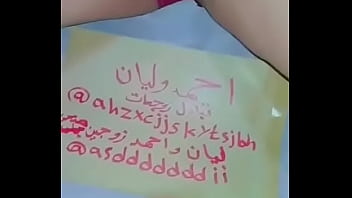 احمد وليان
تبادل زوجات
@ahzxcjjskytsjbh
ليان واحمد زوجين
@asdddddddii